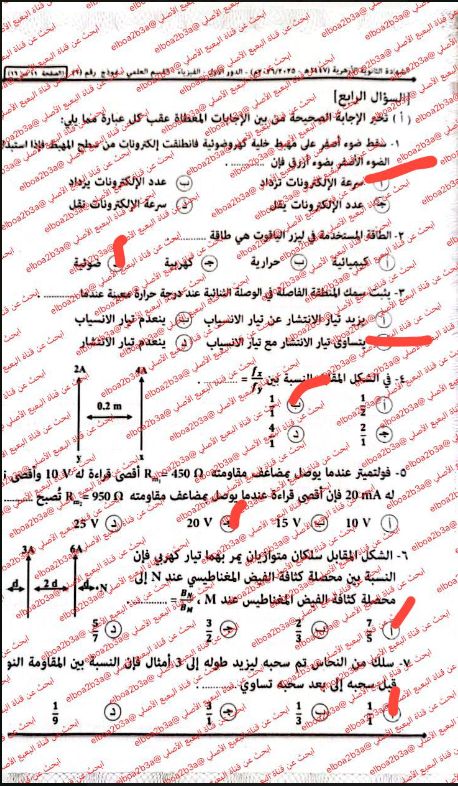 السؤال الرابع]
( أ ) تخير الإجابة الصحيحة من بين الإجابات المعطاة عقب كل عبارة مما يلي:
١- سقط ضوء أصفر على مهبط خلية كهروضوئية فانطلقت إلكترونات من سطح المهبط فإذا استبدل
الضوء الأصفر بضوء أزرق فإن ..........
أ سرعة الإلكترونات تزداد ب عدد الإلكترونات يزداد
ج عدد الإلكترونات يقل د سرعة الإلكترونات تقل
٢- الطاقة المستخدمة في ليزر الياقوت هي طاقة ..........
أ كيميائية ب حرارية ج كهربية ضوئية
٣- يثبت سمك المنطقة الفاصلة في الوصلة الثنائية عند درجة حرارة معينة عندما ..........
أ يزيد تيار الانتشار عن تيار الانسياب ب ينعدم تيار الانسياب
يتساوى تيار الانتشار مع تيار الانسياب د ينعدم تيار الانتشار
٤- في الشكل المقابل النسبة بين fx/fy = ..........
أ 1/2 ب 1/1
ج 2/1 د 4/1
2A 4A
0.2 m
y x
٥- فولتميتر عندما يوصل بمضاعف مقاومته Rm₁= 450 Ω أقصى قراءة له 10 V وأقصى
له 20 mA فإن أقصى قراءة عندما يوصل بمضاعف مقاومته Rm₂= 950 Ω تصبح ..........
أ 10 V ب 15 V ج 20 V د 25 V
٦- الشكل المقابل سلكان متوازيان يمر بهما تيار كهربي فإن
النسبة بين محصلة كثافة الفيض المغناطيسي عند N إلى
محصلة كثافة الفيض المغناطيس عند M ، BN/BM = ..........
أ 7/5 ب 2/3 ج 3/2 د 5/7
3A 6A
d 2 d d N
٧- سلك من النحاس تم سحبه ليزيد طوله إلى 3 أمثال فإن النسبة بين المقاومة
قبل سحبه إلى بعد سحبه تساوي ..........
أ 1/1 ب 1/3 ج 3/1 د 1/9
ابحث عن قناة البعبع الأصلي @elboa2b3a